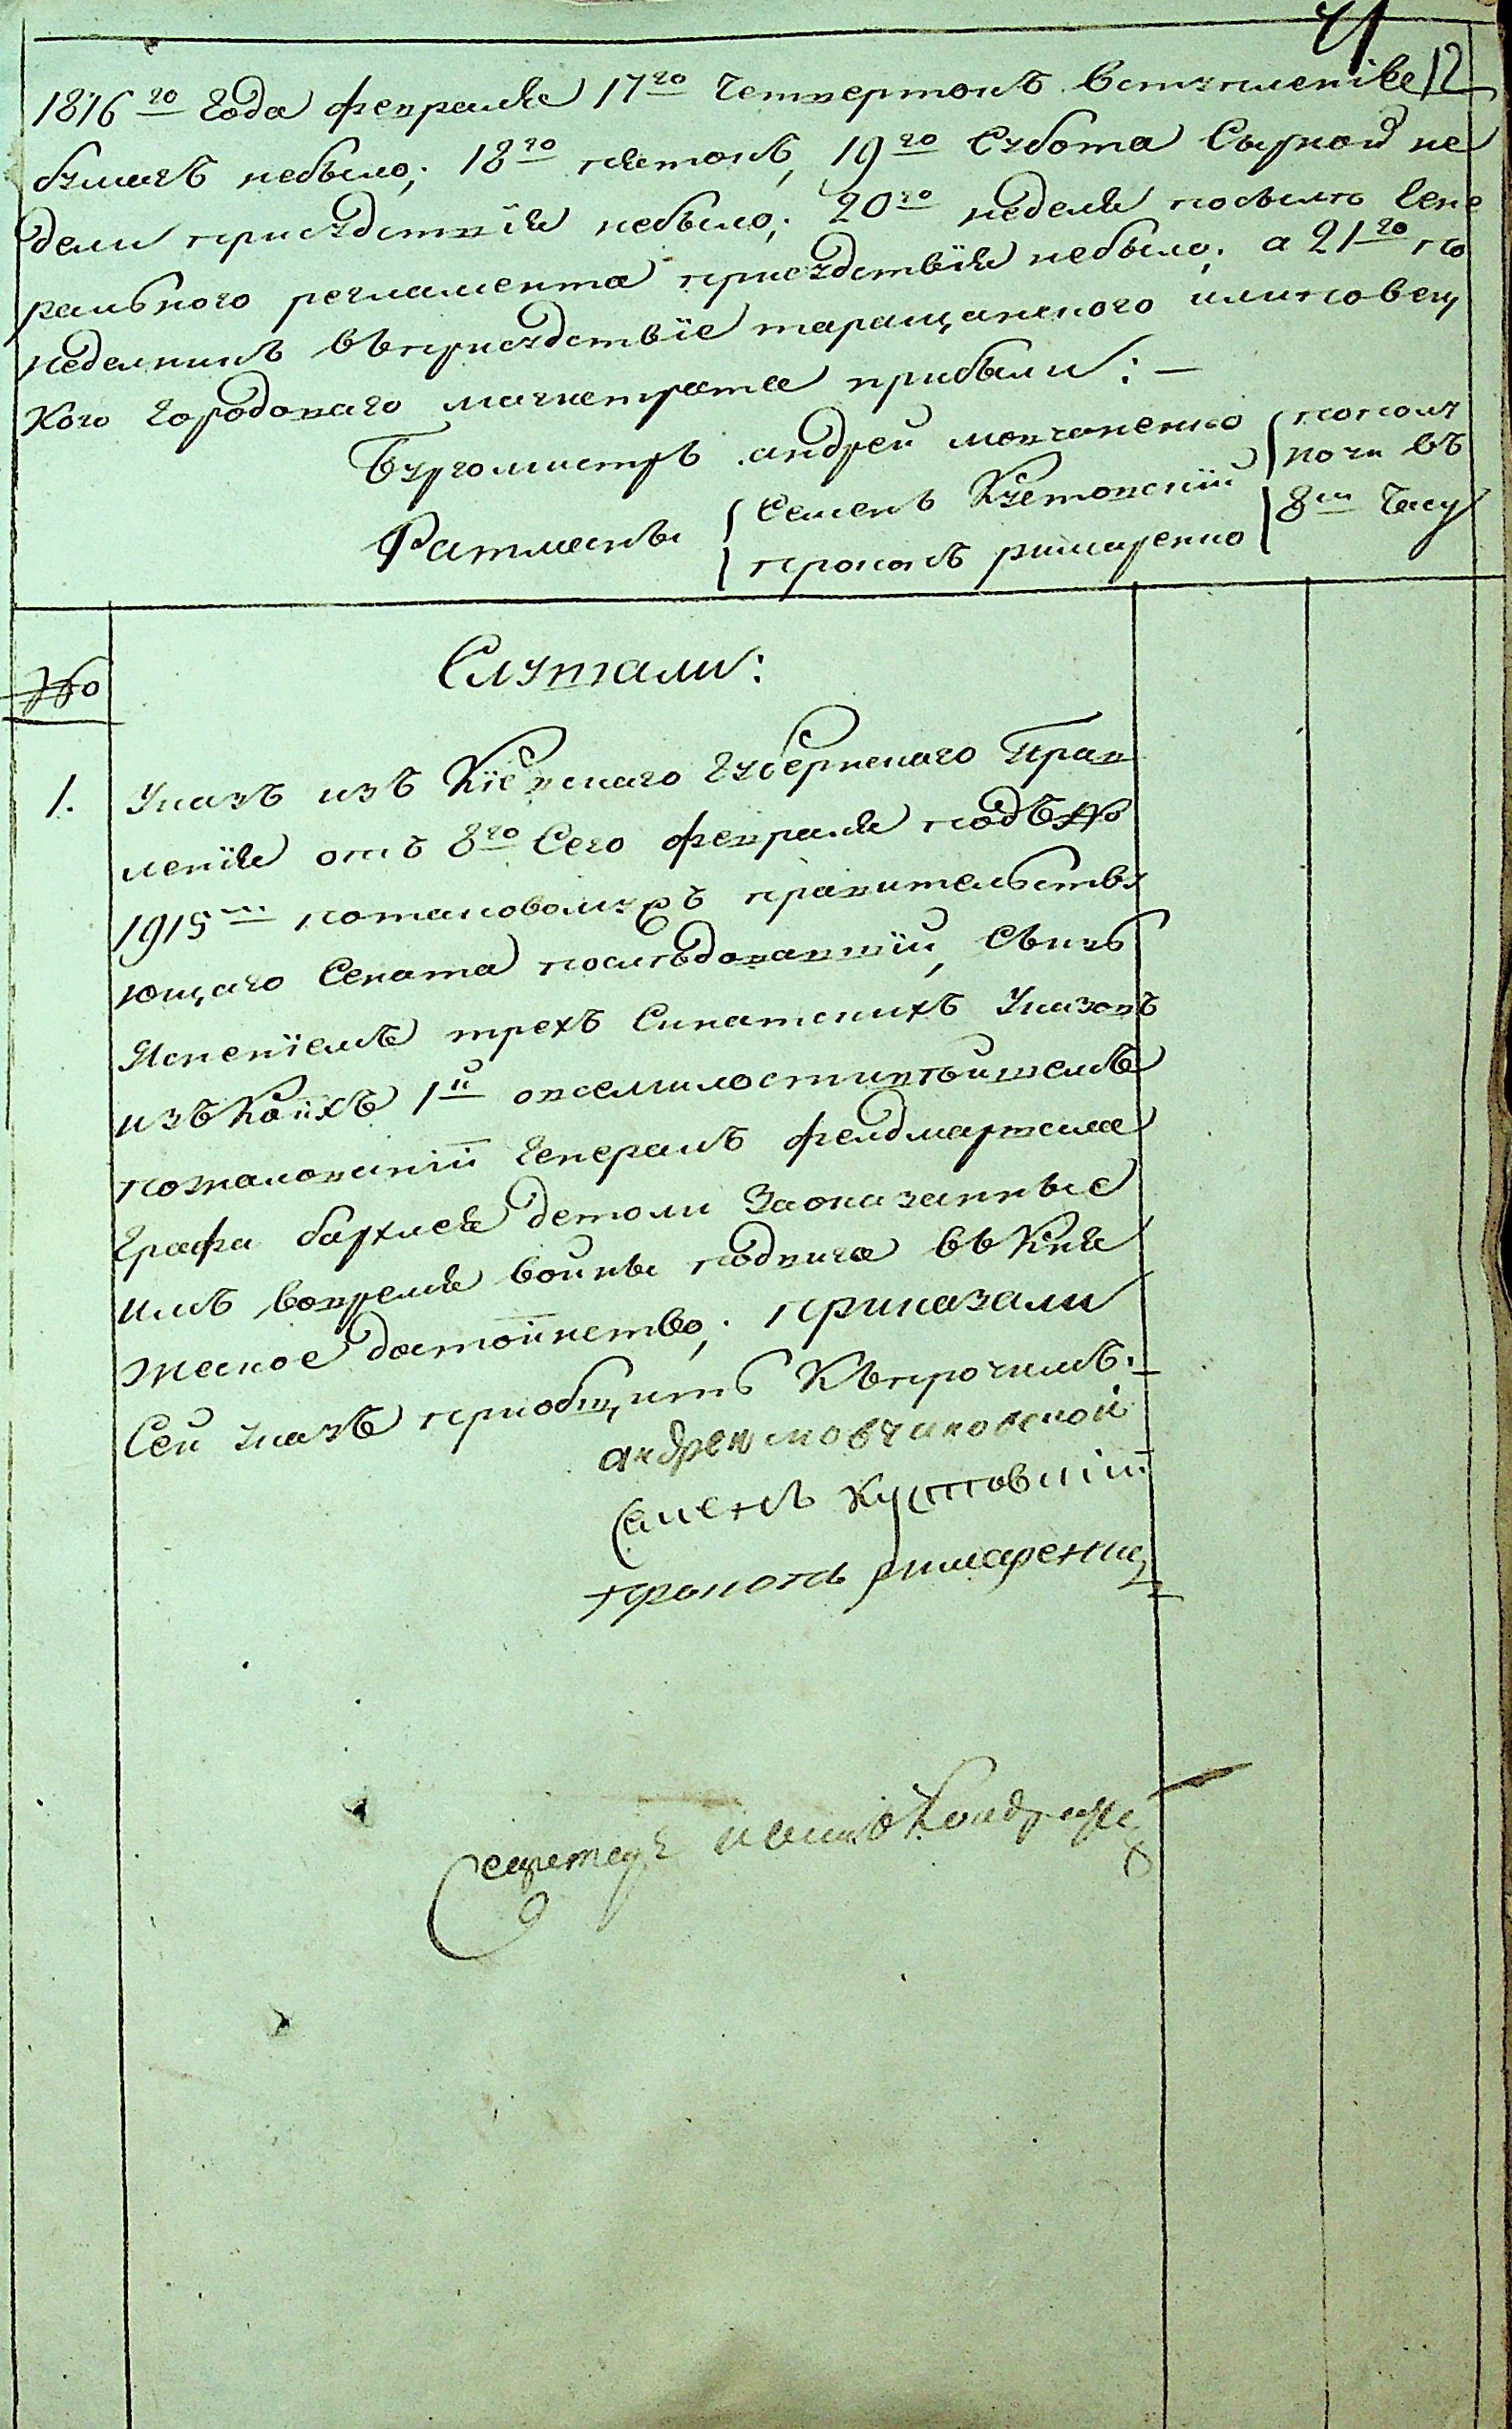 12
1816го года февраля 17го Четвертокъ Вступленіе
бумагъ небыло; 18го пятокъ, 19го Субота Сырной не
дели присудствїя небыло; 20го неделя посылѣ Гене
рального регламента присудствїя небыло; а 21го по
неделникъ въ присудствїе таращанского
кого городоваго магистрата прибыли: —
Бургомистръ андрей мовчаненко пополу
Ратманы Семенъ Кустовскїй ночи въ
прокопъ римаренко 8м Часу
№
Слушали:
1. Указъ изъ Кїевскаго Губернскаго Прав
ленїя отъ 8го Сего февраля подъ №
1915м потаковомужъ правительству
ющаго Сената последовавшїй, Съизъ
Ясненїемъ трехъ Синатскихъ Указовъ
изъ Коихъ 1й овсемилостивѣйшемъ
пожалованїи Генералъ фелдмаршала
Графа барклея детоли Заоказанные
имъ вовремя войны подвига въ Кня
жеское достоинство; приказали
Сей указъ приобщить Къ прочимъ.
андрей мовчановской
Семенъ Кустовскїй
прокопъ римаренко
Секретарь